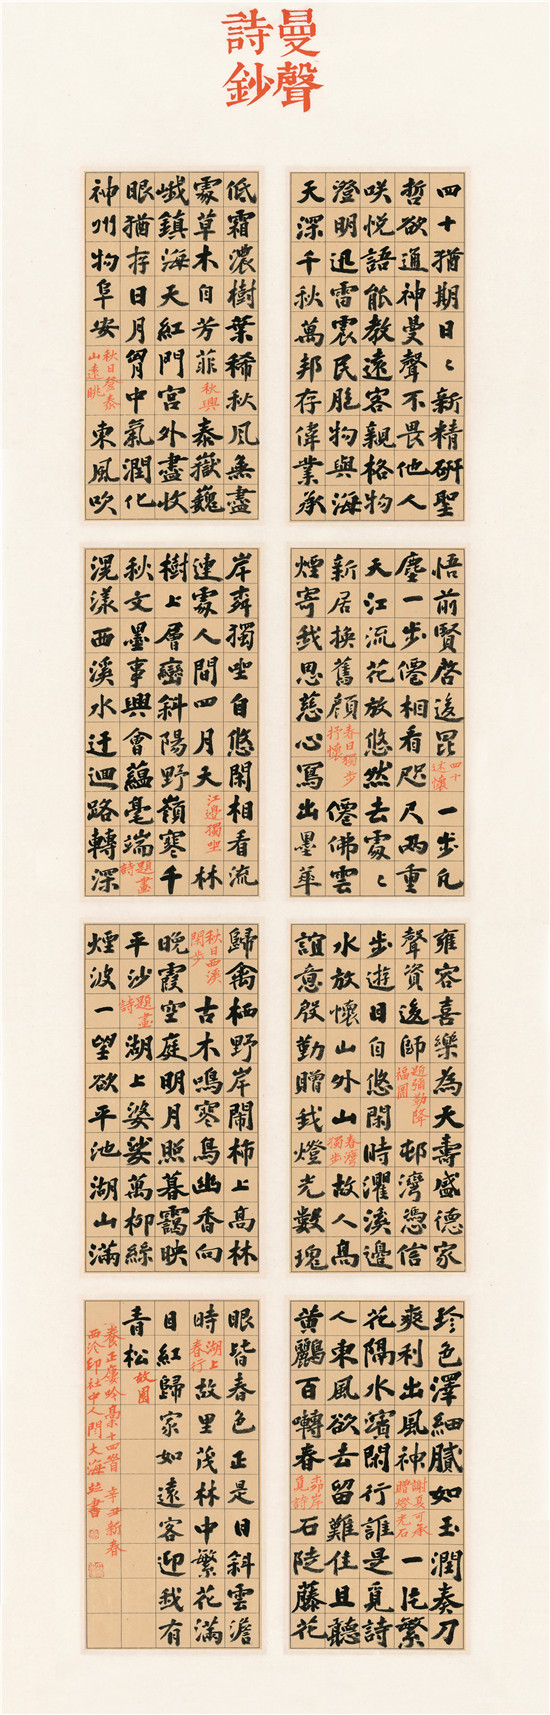 曼聲
詩鈔
四十猶期日〻新精研聖
哲欲通神曼聲不畏他人
咲悦語能教遠客親格物
澄明迅雷震民胞物與海
天深千秋萬邦存偉業承
悟前賢啓後昆四十述懷一步凡
塵一步僊相看咫尺兩重
天江流花放悠然去處〻
新居換舊顔春日獨步抒懷僊佛雲
煙寄我思慈心寫出墨華
雍容喜樂為天壽盛德家
聲資後師題彌勒降福圖邨灣憑信
步遊目自悠閑時濯溪邊
水放懷山外山春灣獨步故人高
誼意殷勤贈我燈光數瑰
珍色澤細膩如玉潤奏刀
爽利出風神謝夏可承贈燈光石一片繁
花隔水濱閑行誰是覓詩
人東風欲去留難住且聽
黄鸝百囀春岸覓詩石陡藤花
低霜濃樹葉稀秋風無盡
處草木自芳菲秋興泰嶽巍
峨鎮海天紅門宮外盡收
眼猶存日月胷中氣潤化
神州物阜安秋日登泰山遠眺東風吹
岸森獨坐自悠閑相看流
連處人間四月天江邊獨坐林
樹上層巒斜陽野嶺寒千
秋文墨事興會蘊毫端題畫詩
滉漾西溪水迂迴路轉深
歸禽栖野岸鬧柿上高林
秋日西溪閑步古木鳴寒鳥幽香向
晚霞空庭明月照暮靄映
平沙題畫詩湖上婆娑萬柳絲
煙波一望欲平池湖山滿
眼皆春色正是日斜雲澹
時湖上春行故里茂林中繁花滿
目紅歸家如遠客迎我有
青松故園
養正廬吟稾十四首辛丑新春
西泠印社中人閆大海並書